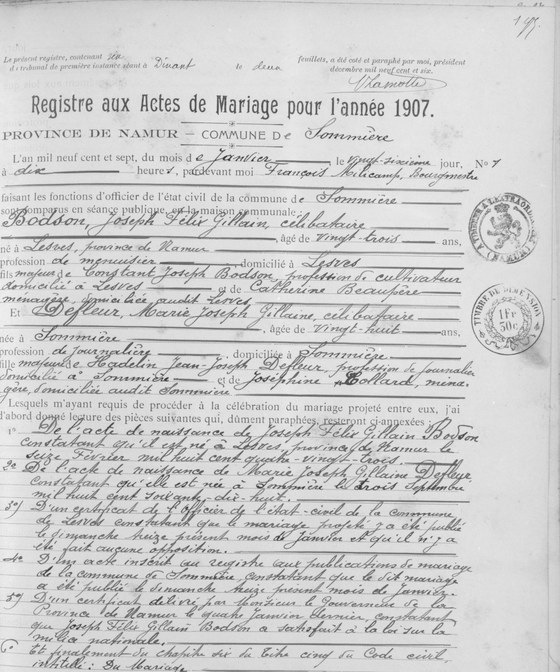 197.
Le présent registre, contenant six feuillets, a été coté et paraphé par moi, président
du tribunal de première instance séant à Dinant le deux décembre mil neuf cent et six.
Registre aux Actes de Mariage pour l'année 1907.
PROVINCE DE NAMUR — COMMUNE De Sommière
L'an mil neuf cent et sept, du mois de Janvier le vingt-sixième jour, No 1
à dix heures, par devant moi François Milicamp, Bourgmestre
faisant les fonctions d'officier de l'état civil de la commune de Sommière
sont comparus en séance publique, en la maison communale:
Bodson, Joseph Félix Gillain, célibataire
, âgé de vingt-trois ans,
né à Lesves, province de Namur
profession de menuisier, domicilié à Lesves
fils majeur de Constant Joseph Bodson, profession de cultivateur
domicilié à Lesves et de Catherine Beaupère
ménagère, domiciliée audit Lesves
Et Defleur, Marie Joseph Gillaine, célibataire
, âgée de vingt-huit ans,
née à Sommière
profession de journalière, domiciliée à Sommière
fille majeure de Hadelin Jean Joseph Defleur, profession de journalier
domicilié à Sommière et de Joséphine Collard, ména-
gère, domiciliée audit Sommière
Lesquels m'ayant requis de procéder à la célébration du mariage projeté entre eux, j'ai
d'abord donné lecture des pièces suivantes qui, dûment paraphées, resteront ci-annexées:
1° De l'acte de naissance de Joseph Félix Gillain Bodson
constatant qu'il est né à Lesves, province de Namur le
seize Février mil huit cent quatre-vingt-trois.
2° De l'acte de naissance de Marie Joseph Gillaine Defleur,
constatant qu'elle est née à Sommière le trois Septembre
mil huit cent soixante-dix-huit.
3°) D'un certificat de l'officier de l'état-civil de la commune
de Lesves constatant que le mariage projeté y a été publié
le dimanche treize présent mois de janvier et qu'il n'y a
été fait aucune opposition.
4° D'un acte inscrit au registre aux publications de mariage
de la commune de Sommière constatant que le dit mariage
a été publié le dimanche treize présent mois de janvier.
5°) D'un certificat délivré par Monsieur le Gouverneur de la
Province de Namur le quatre janvier dernier, constatant
que Joseph Félix Gillain Bodson a satisfait à la loi sur la
milice nationale.
Et finalement du chapitre six du titre cinq du Code civil,
intitulé: Du Mariage
TIMBRE DE DIMENSION
1 Fr
50c